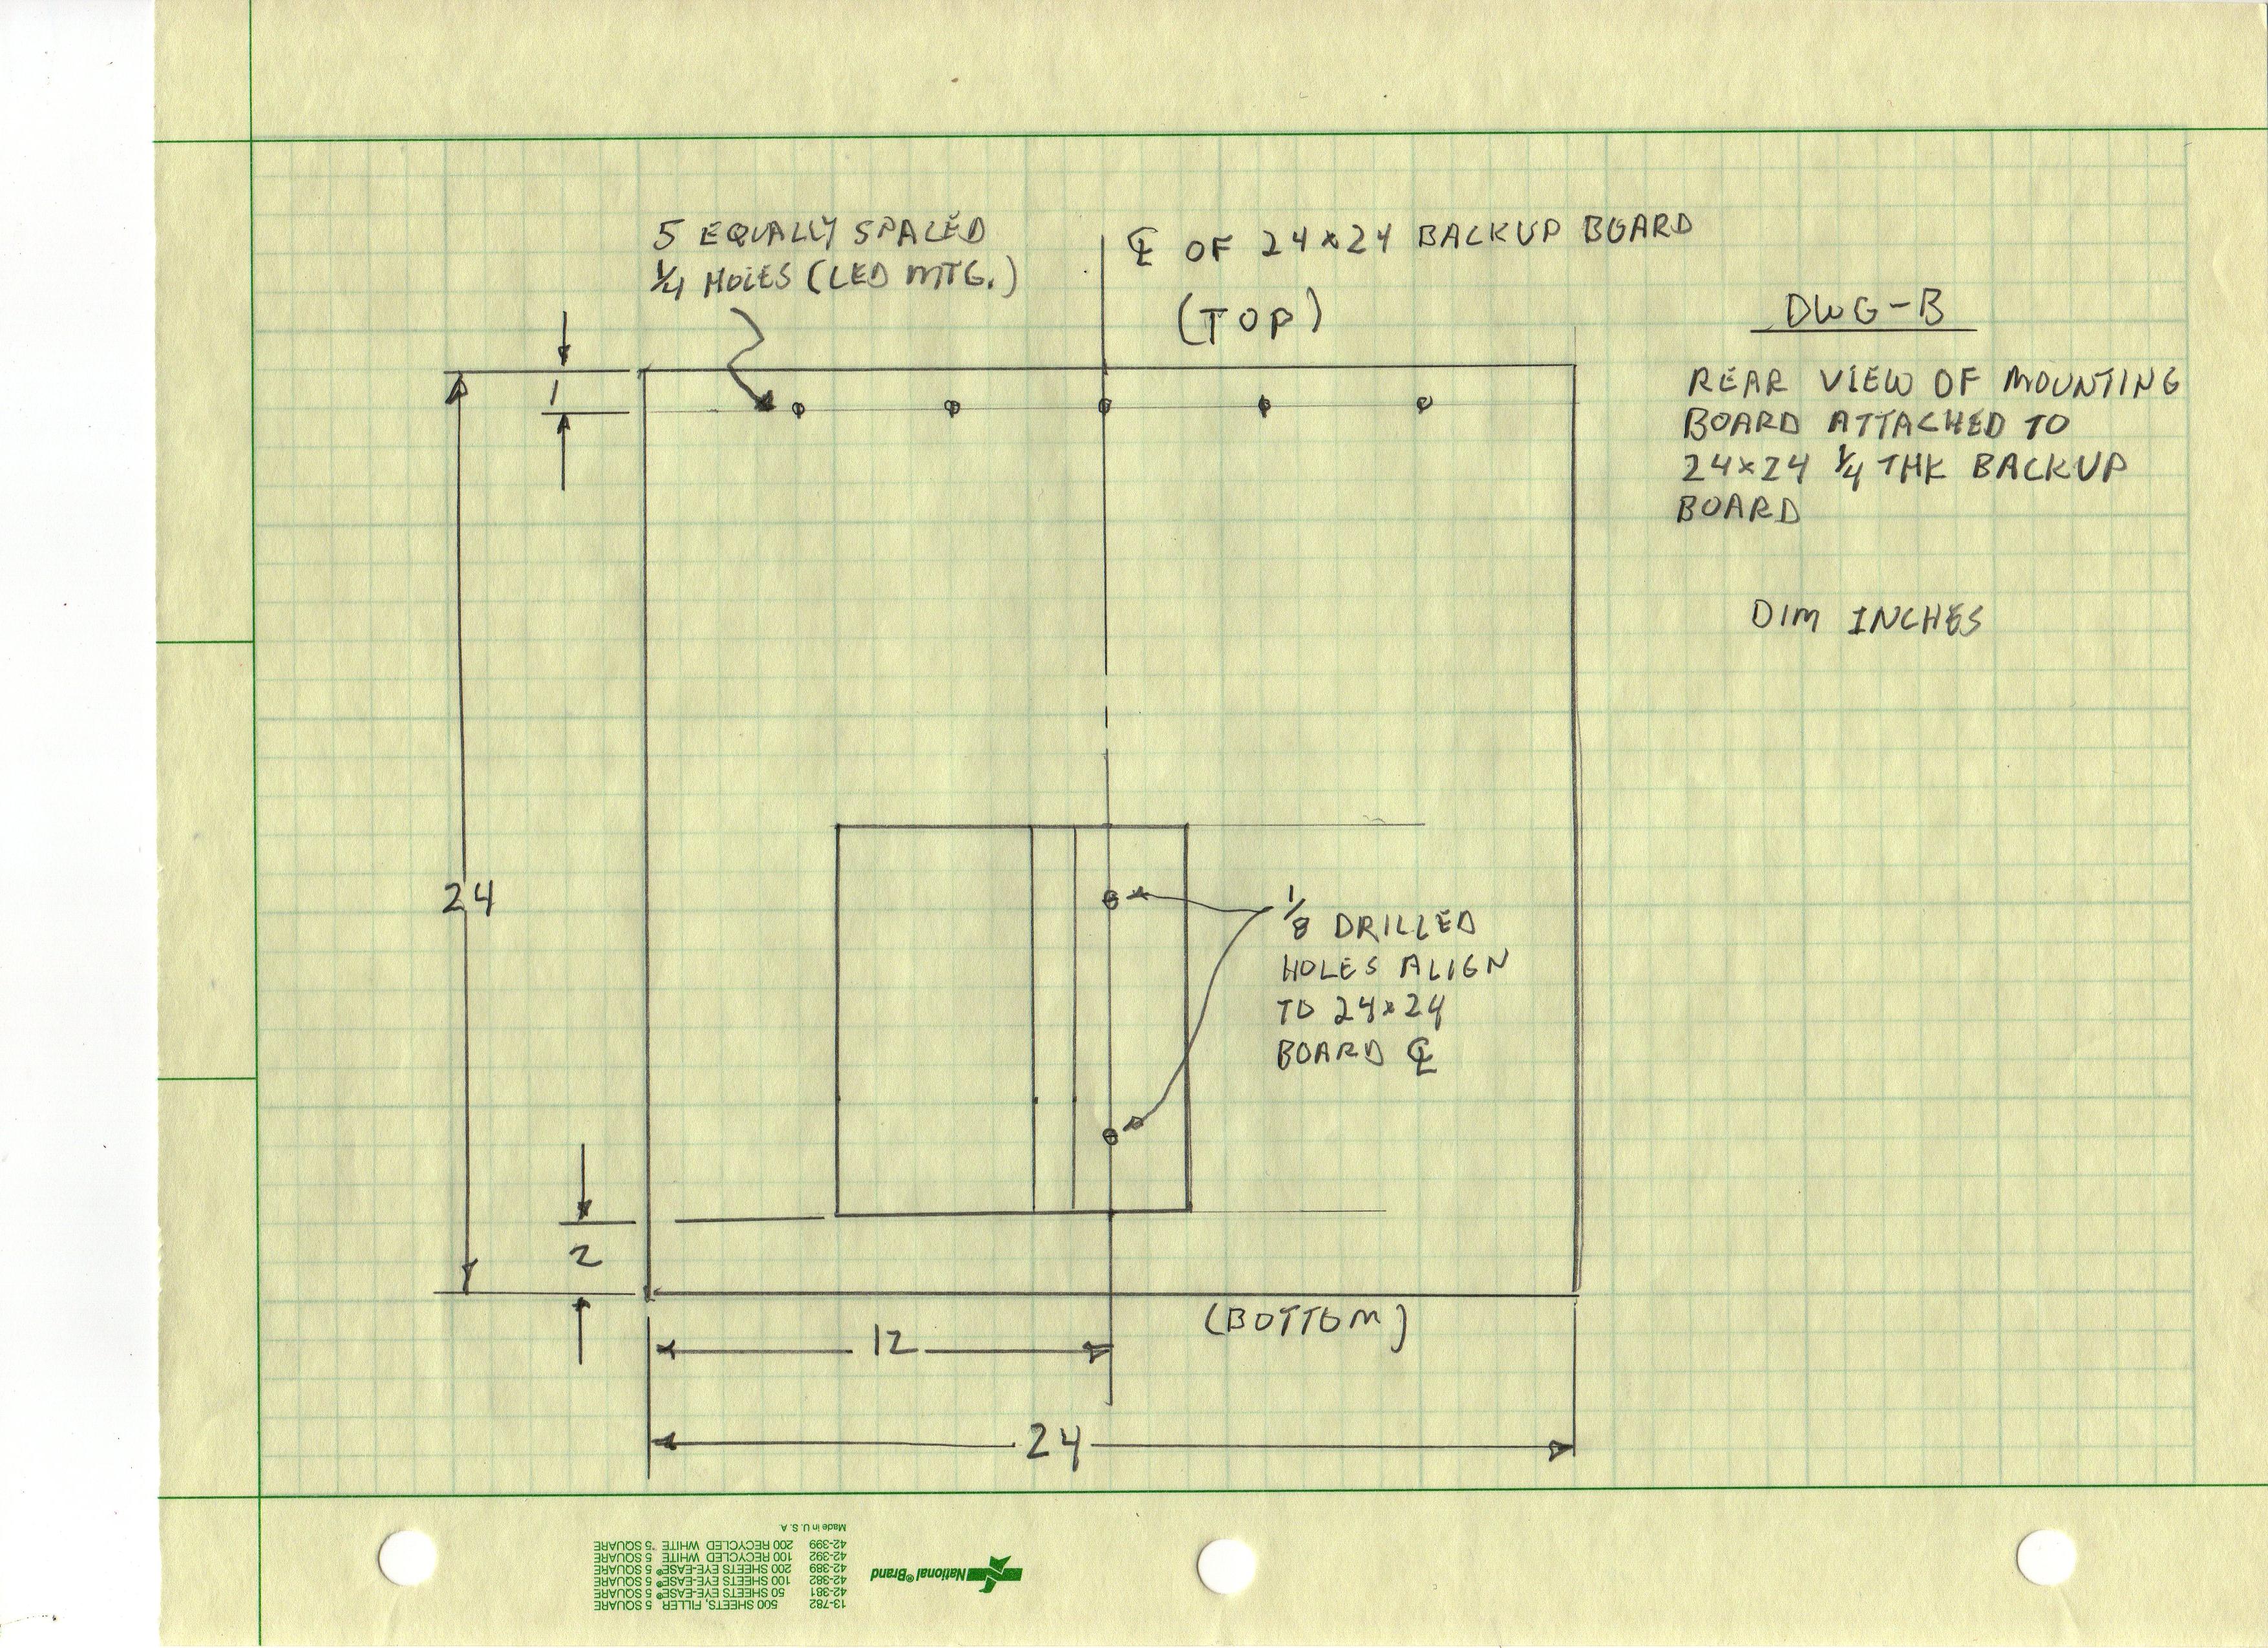 5 EQUALLY SPACED
1/4 HOLES (LED MTG.)
℄ OF 24x24 BACKUP BOARD
(TOP)
DWG-B
REAR VIEW OF MOUNTING
BOARD ATTACHED TO
24x24 1/4 THK BACKUP
BOARD
DIM INCHES
1
24
1/8 DRILLED
HOLES ALIGN
TO 24x24
BOARD ℄
2
(BOTTOM)
12
24
National®Brand
13-782 500 SHEETS, FILLER 5 SQUARE
42-381 50 SHEETS EYE-EASE® 5 SQUARE
42-382 100 SHEETS EYE-EASE® 5 SQUARE
42-389 200 SHEETS EYE-EASE® 5 SQUARE
42-392 100 RECYCLED WHITE 5 SQUARE
42-399 200 RECYCLED WHITE 5 SQUARE
Made in U.S.A